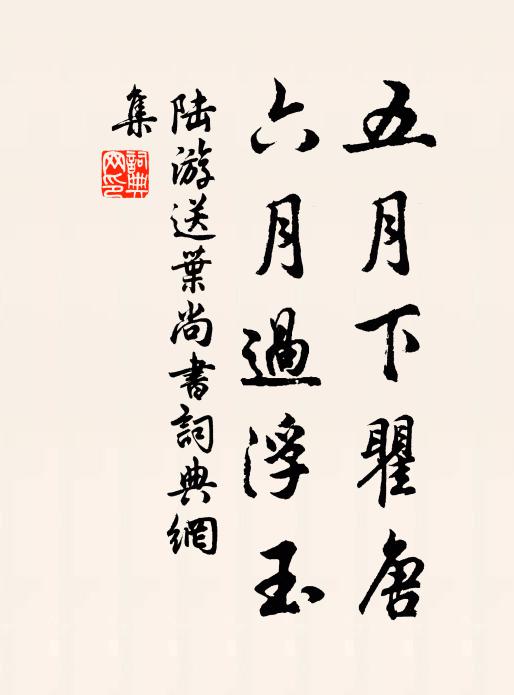 五月下瞿唐
六月過浮玉
陆游送葉尚書詞典網
集
詞典网印